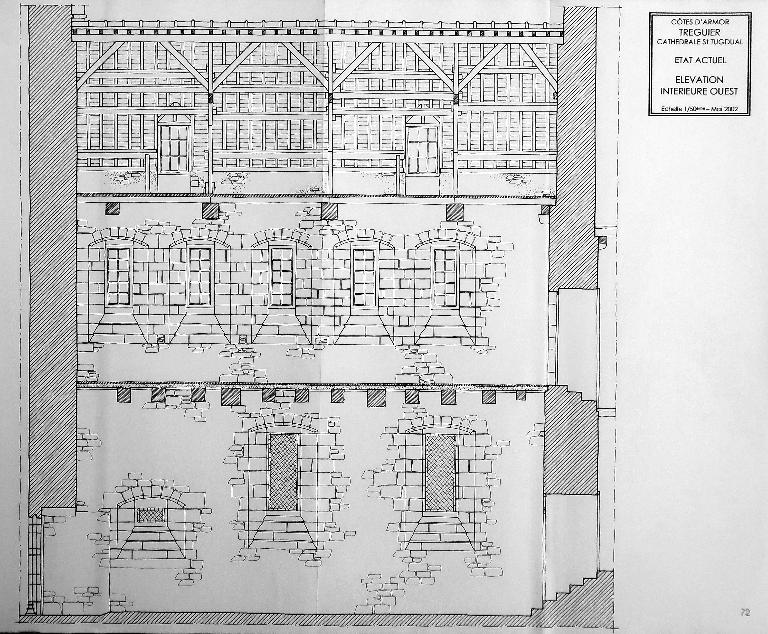 CÔTES D'ARMOR
TREGUIER
CATHEDRALE St TUGDUAL
ETAT ACTUEL
ELEVATION
INTERIEURE OUEST
Echelle 1/50ème - Mai 2002
72